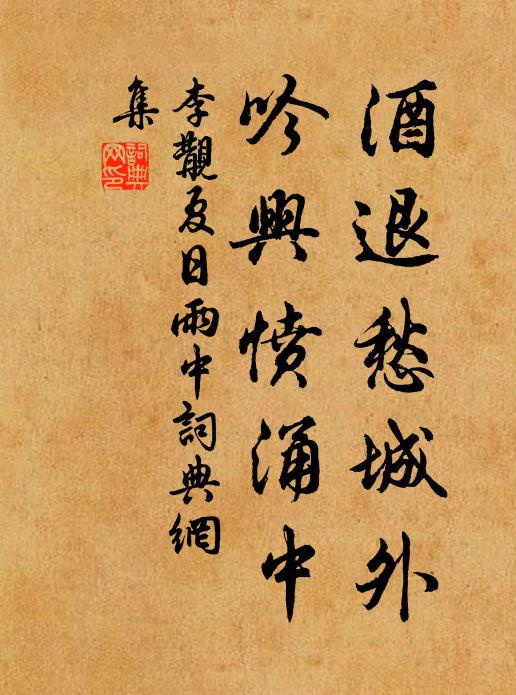 酒退愁城外
吟興憤涌中
李覯夏日雨中詞典網
集
詞典網印